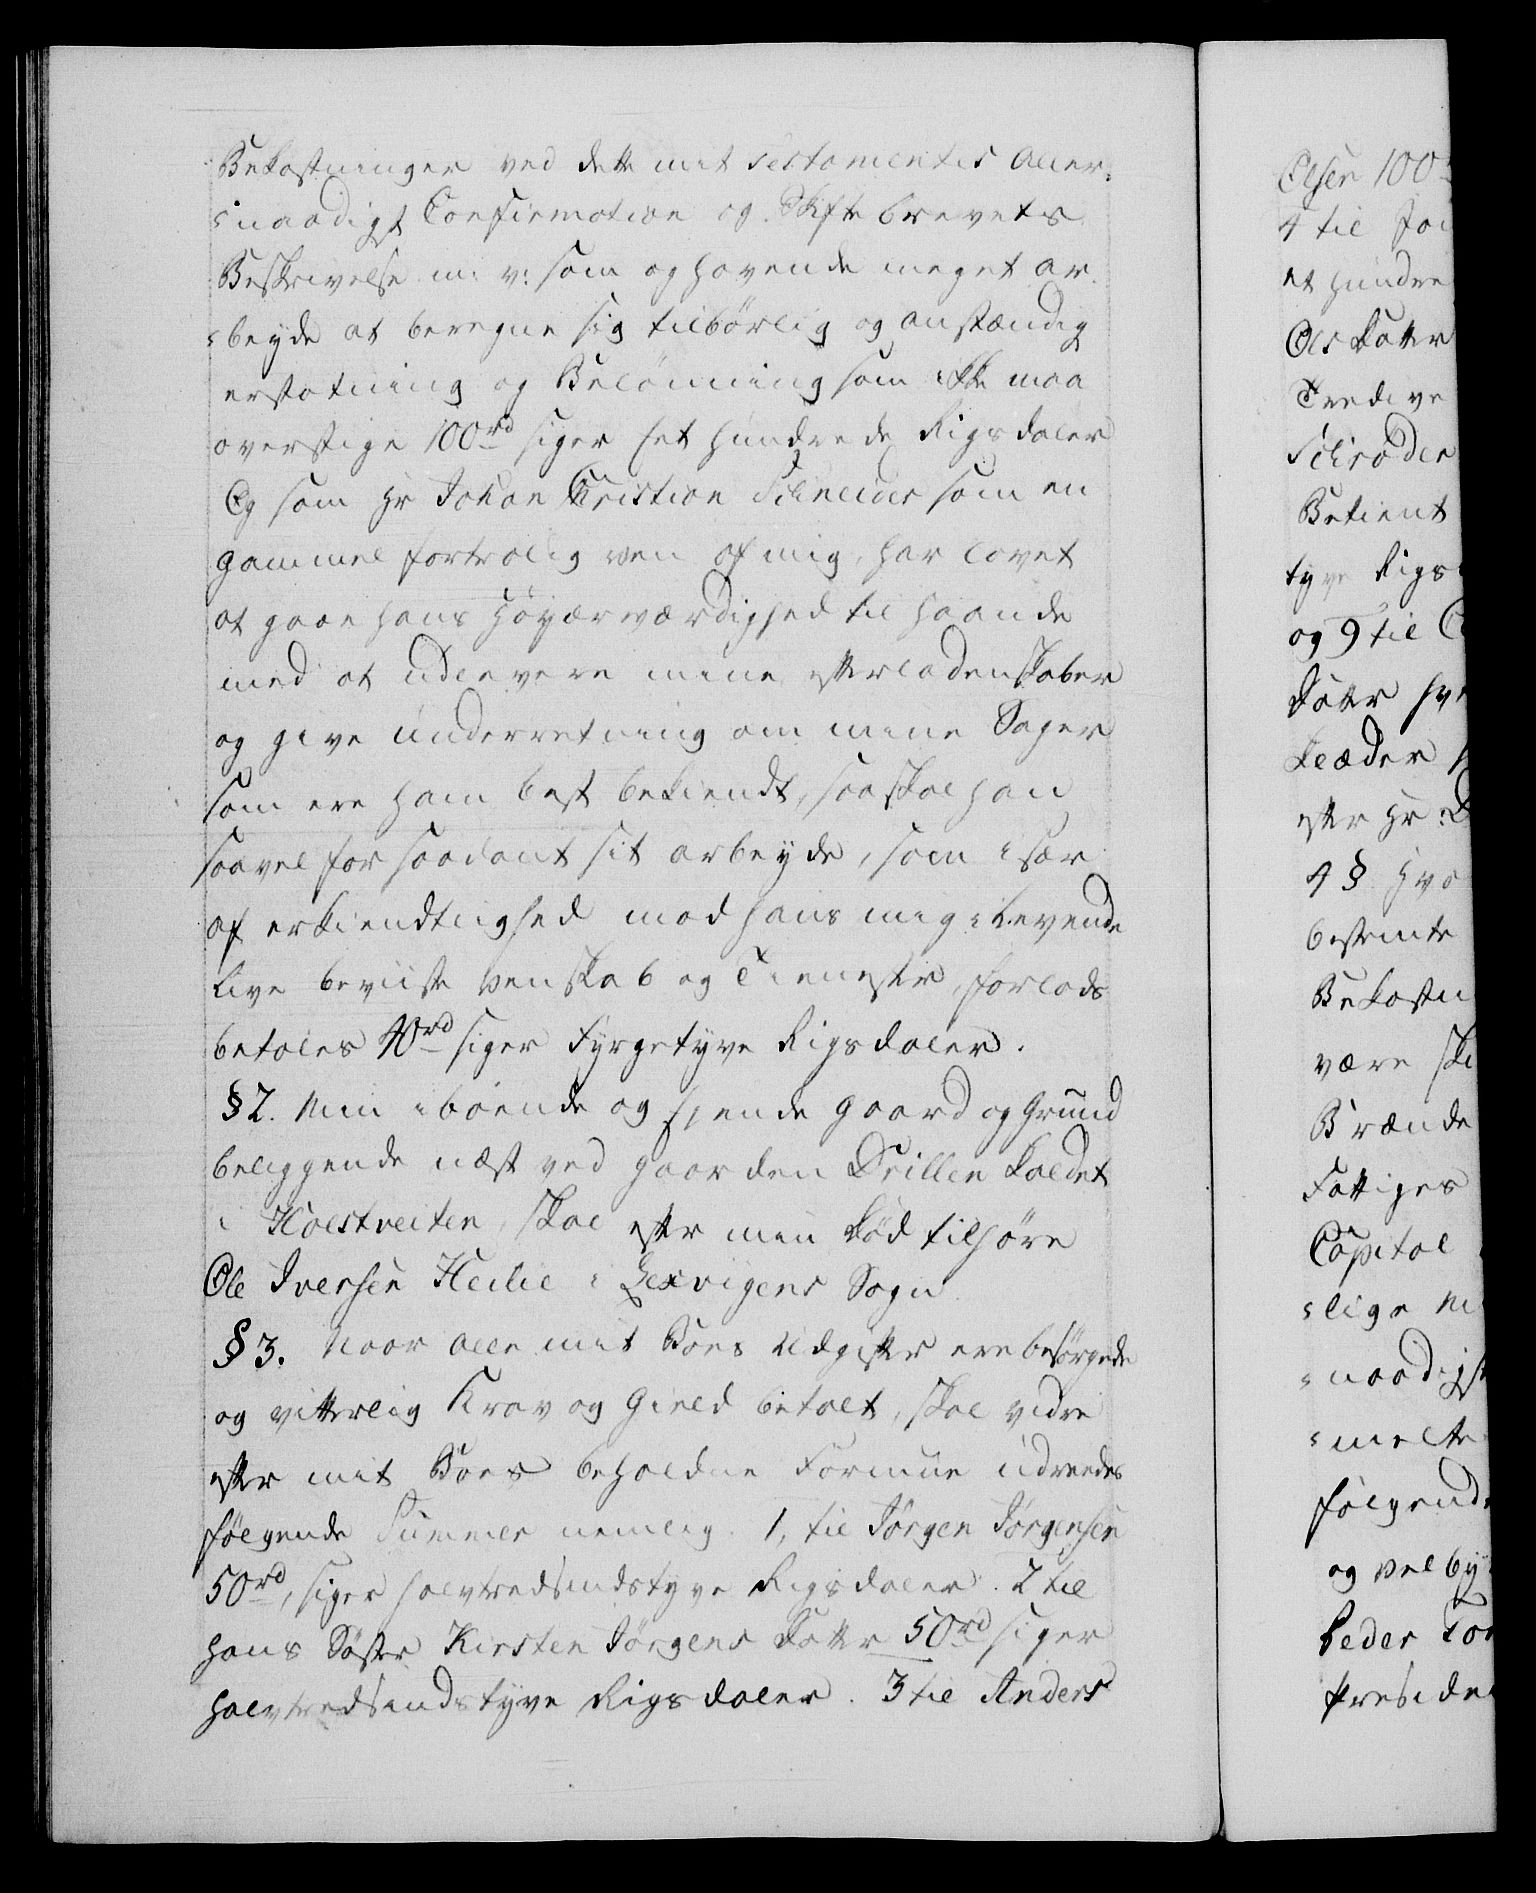 Bekostninger ved dette mit Testamentes Aller-
-naadigst Confirmation og Skifte brevets
Beskrivelse m: v: som og havende meget ar-
-beyde at beregne sig tilbørlig og anstændig
erstatning og Belønning som ikke maa
overstige 100rd siger et hundrede Rigsdaler
Og som Hr Johan Christian Schneider som en
gammel fortrolig ven af mig, har lovet
at gaae hans Høyærværdighed til haande
med at udlevere mine efterladenskaber
og give underretning om mine Sager
som ere ham best bekiendt, saa skal han
saavel for saadant sit arbeyde, som især
af erkiendtlighed mod hans mig i Levende
Live beviiste venskab og Tienester, forlods
betales 40rd siger Fyrgetyve Rigsdaler.
§ 2. Min iboende og eyende Gaard og Grund
beliggende næst ved gaarden Drillen kaldet
i Holstveiten, skal efter min død tilhøre
Ole Iversen Heilie i Lexvigens Sogn
§ 3. Naar alle mit Boes Udgifter ere besørgede
og vitterlig Krav og Gield betalt, skal vidre
efter mit Boes beholdne Formue udreedes
følgende Summer nemlig. 1, til Jørgen Jørgensen
50rd, siger halvtredsindstyve Rigsdaler. 2 til
hans Søster Kirsten Jørgens datter 50rd siger
halvtredsindstyve Rigsdaler. 3 til Anders
Olsen 100
4 til
et hundre
Ols datter
Tredive
Schrøder
Betient
tyve Rigs
og 9 til
datter
klæder
efter Hr:
4 §
bestemte
Bekostn
være
Brænde
Fattiges
Capital
-lige
-naadigst
-melte
følgende
og velby
beder
Preside